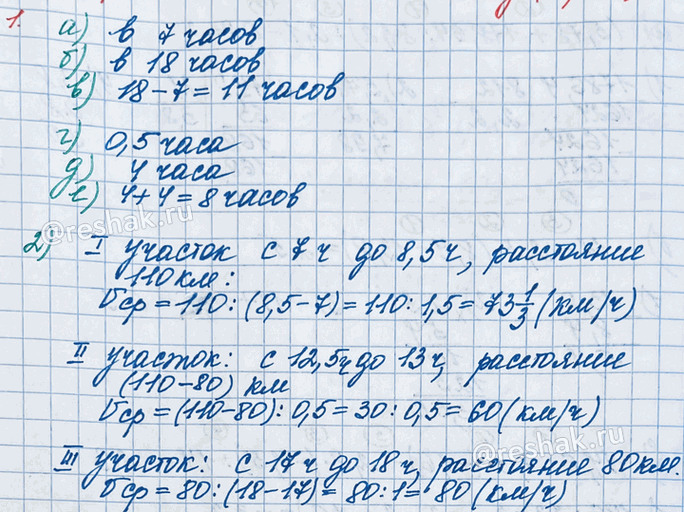 1. а) в 7 часов
б) в 18 часов
в) 18-7=11 часов
г) 0,5 часа
д) 4 часа
е) 4+4=8 часов
@reshak.ru
2) I участок с 7ч до 8,5ч, расстояние
110км:
Vср=110:(8,5-7)=110:1,5=73 1/3 (км/ч)
II участок: с 12,5ч до 13ч, расстояние
(110-80) км
Vср=(110-80):0,5=30:0,5=60(км/ч)
@reshak.ru
III участок: с 17ч до 18ч, расстояние 80км.
Vср=80:(18-17)=80:1=80(км/ч)